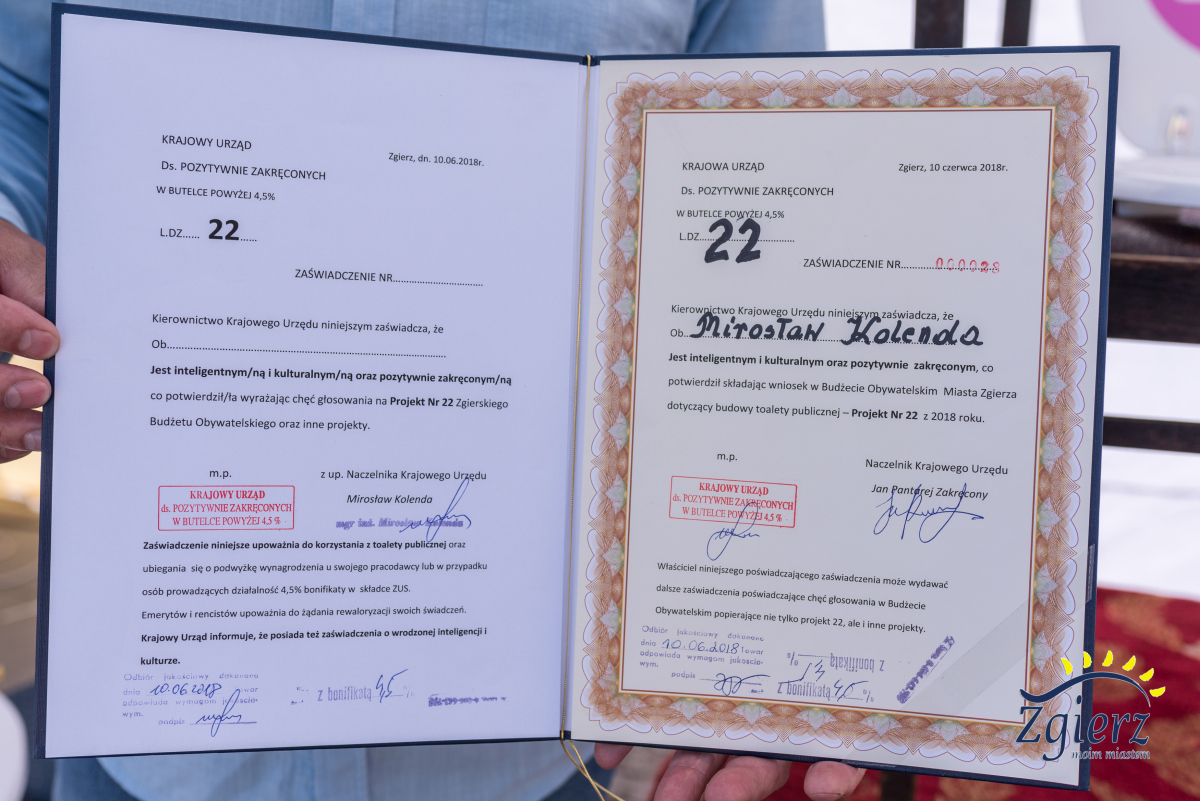 KRAJOWY URZĄD
Zgierz, dn. 10.06.2018r.
Ds. POZYTYWNIE ZAKRĘCONYCH
W BUTELCE POWYŻEJ 4,5%
L.DZ...... 22......
ZAŚWIADCZENIE NR................................
Kierownictwo Krajowego Urzędu niniejszym zaświadcza, że
Ob................................................................................................
Jest inteligentnym/ną i kulturalnym/ną oraz pozytywnie zakręconym/ną
co potwierdził/ła wyrażając chęć głosowania na Projekt Nr 22 Zgierskiego
Budżetu Obywatelskiego oraz inne projekty.
m.p.
z up. Naczelnika Krajowego Urzędu
Mirosław Kolenda
KRAJOWY URZĄD
ds. POZYTYWNIE ZAKRĘCONYCH
W BUTELCE POWYŻEJ 4,5 %
mgr inż. Mirosław Kolenda
Zaświadczenie niniejsze upoważnia do korzystania z toalety publicznej oraz
ubiegania się o podwyżkę wynagrodzenia u swojego pracodawcy lub w przypadku
osób prowadzących działalność 4,5% bonifikaty w składce ZUS.
Emerytów i rencistów upoważnia do żądania rewaloryzacji swoich świadczeń.
Krajowy Urząd informuje, że posiada też zaświadczenia o wrodzonej inteligencji i
kulturze.
Odbiór jakościowy dokonano
dnia 10.06.2018 towar
odpowiada wymogom jakościo-
wym.
podpis
z bonifikatą 4,5 %
KRAJOWA URZĄD
Zgierz, 10 czerwca 2018r.
Ds. POZYTYWNIE ZAKRĘCONYCH
W BUTELCE POWYŻEJ 4,5%
L.DZ... 22 ............
ZAŚWIADCZENIE NR............ 000028
Kierownictwo Krajowego Urzędu niniejszym zaświadcza, że
Ob... Mirosław Kolenda
Jest inteligentnym i kulturalnym oraz pozytywnie zakręconym, co
potwierdził składając wniosek w Budżecie Obywatelskim Miasta Zgierza
dotyczący budowy toalety publicznej – Projekt Nr 22 z 2018 roku.
m.p.
Naczelnik Krajowego Urzędu
Jan Pantarej Zakręcony
KRAJOWY URZĄD
ds. POZYTYWNIE ZAKRĘCONYCH
W BUTELCE POWYŻEJ 4,5 %
Właściciel niniejszego poświadczającego zaświadczenia może wydawać
dalsze zaświadczenia poświadczające chęć głosowania w Budżecie
Obywatelskim popierające nie tylko projekt 22, ale i inne projekty.
Odbiór jakościowy dokonano
dnia 10.06.2018 towar
odpowiada wymogom jakościo-
wym.
podpis
z bonifikatą %
z bonifikatą 4,5 %
Zgierz
moim miastem